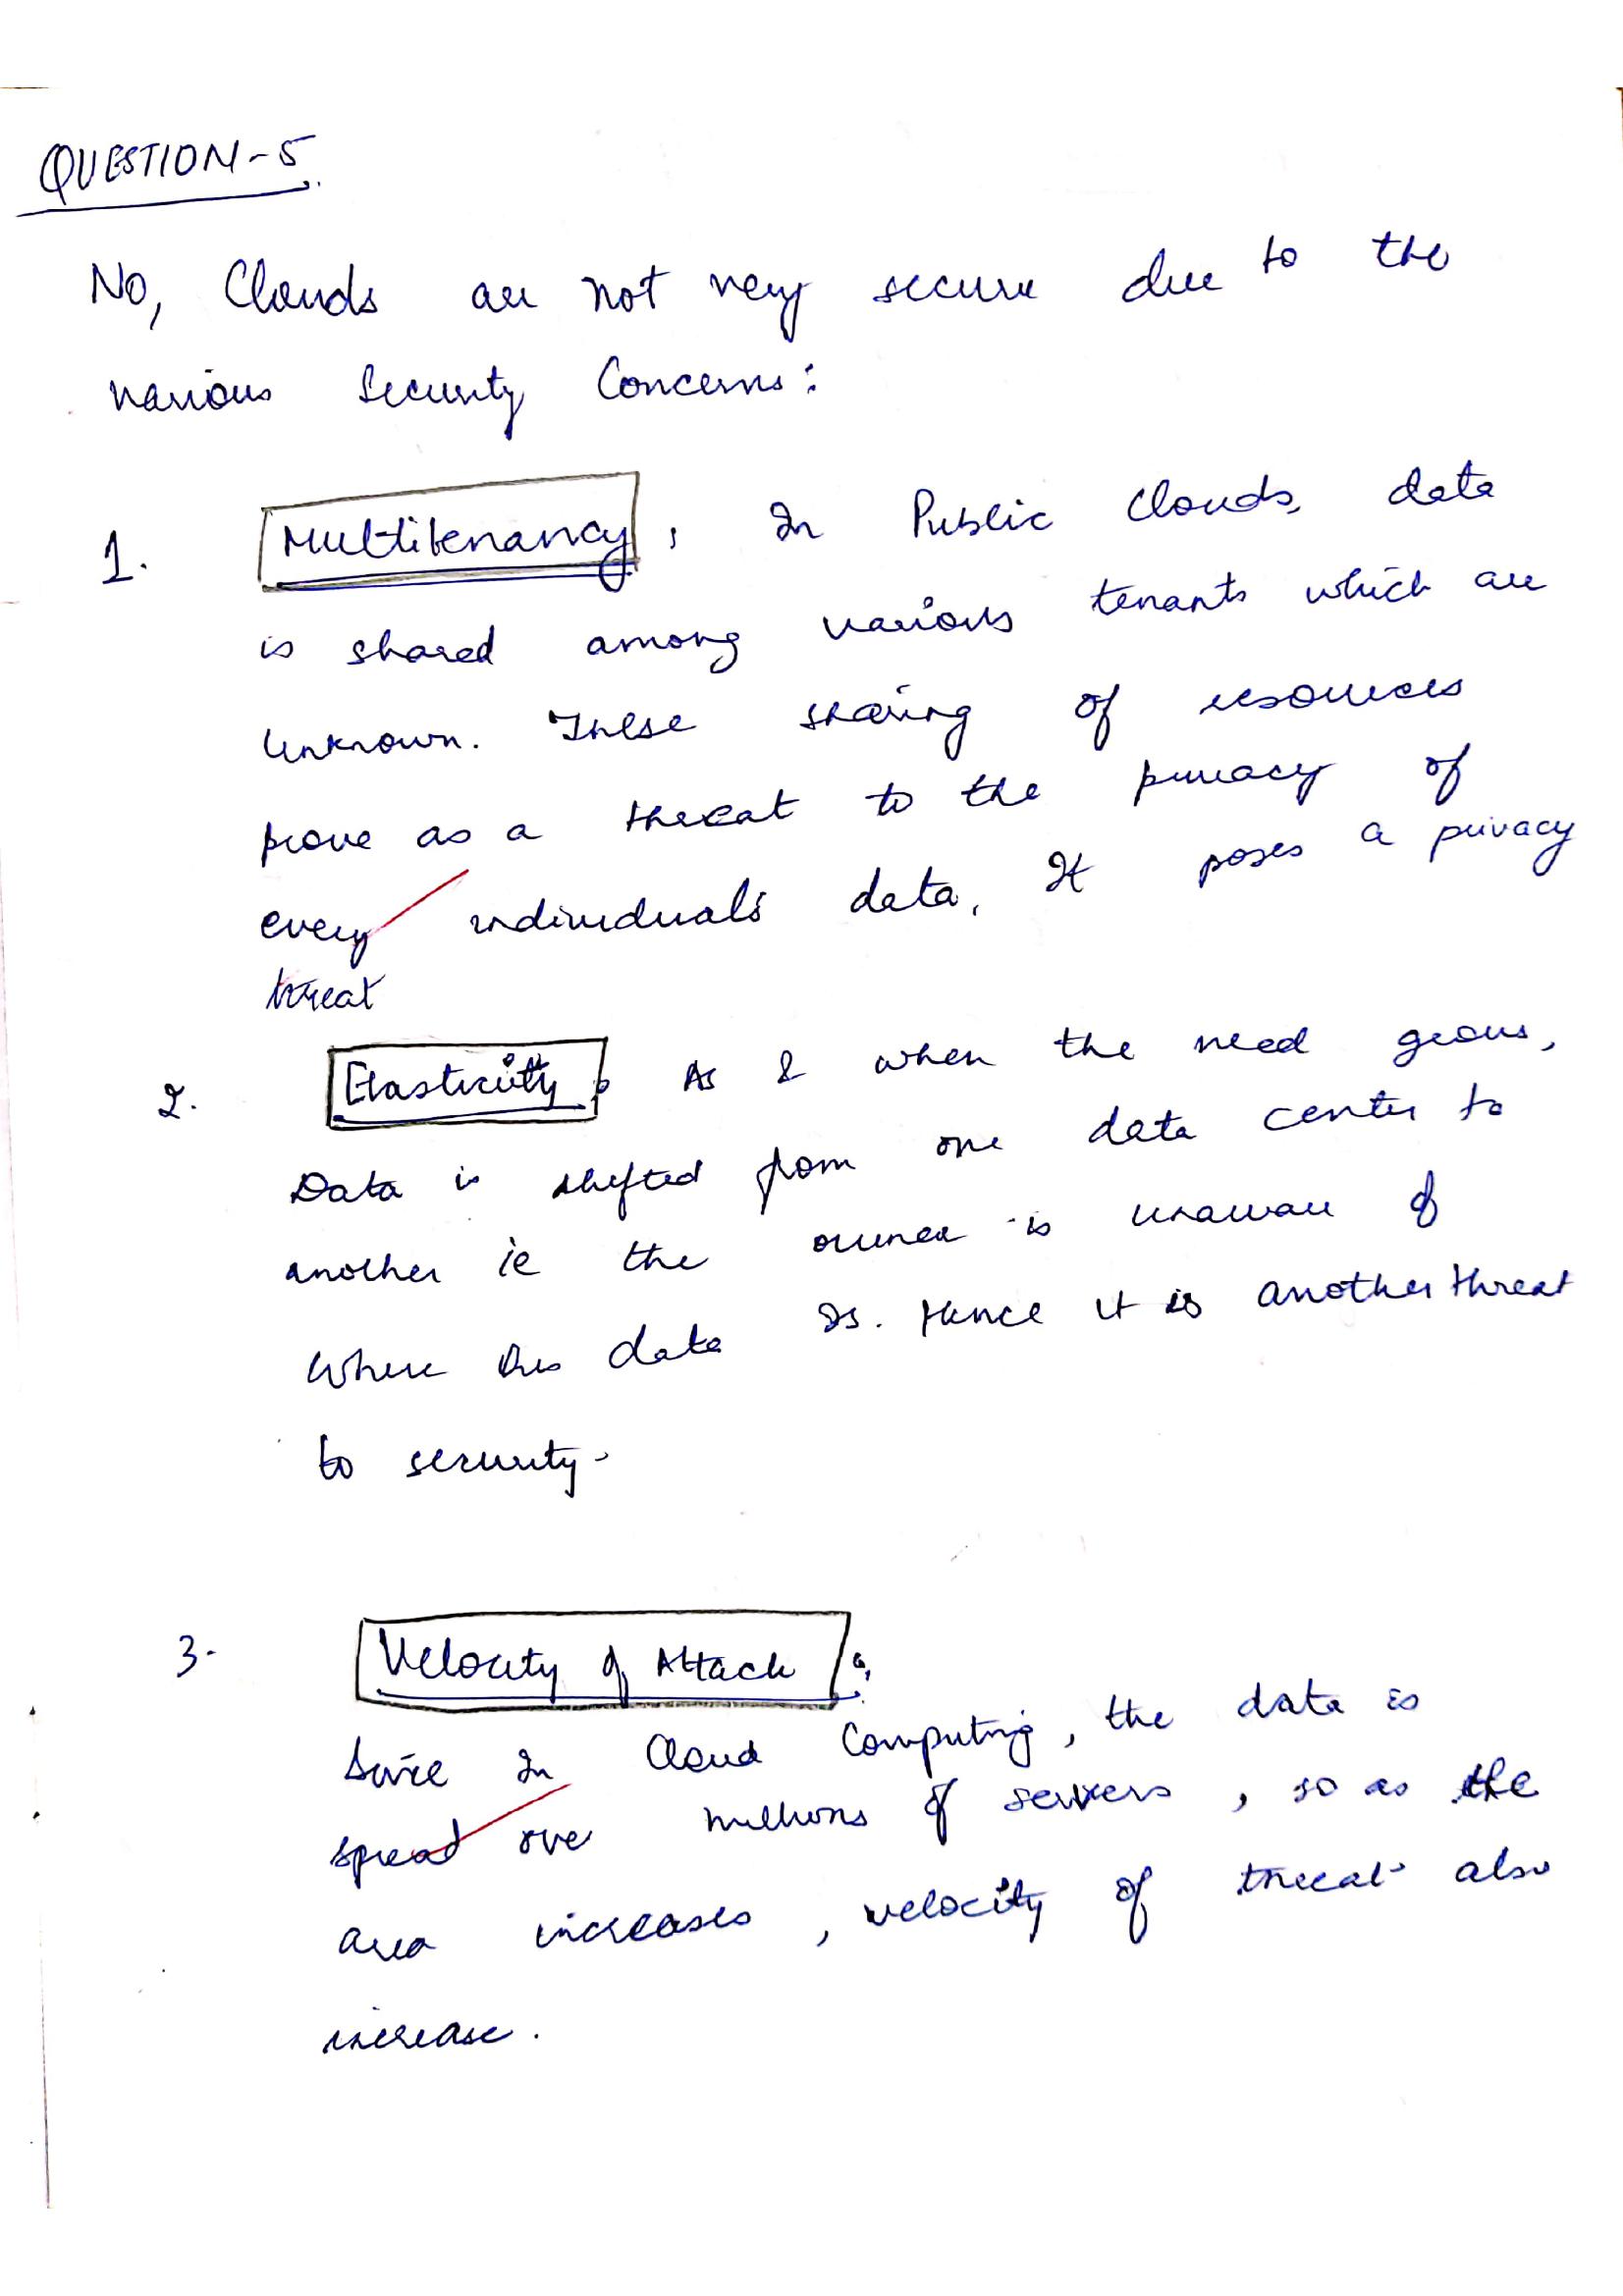 QUESTION-5.
No, Clouds are not very secure due to the
various Security Concerns:
1. Multitenancy, In Public Clouds, data
is shared among various tenants which are
unknown. These sharing of resources
prove as a threat to the privacy of
every individuals data. It poses a privacy
threat
2. Elasticity: As & when the need grows,
Data is shifted from one data center to
another ie the owner is unaware of
where his data Is. Hence it is another threat
to security.
3. Velocity of Attack:
Since In Cloud Computing, the data is
spread over millions of servers, so as the
area increases, velocity of threat also
increase.